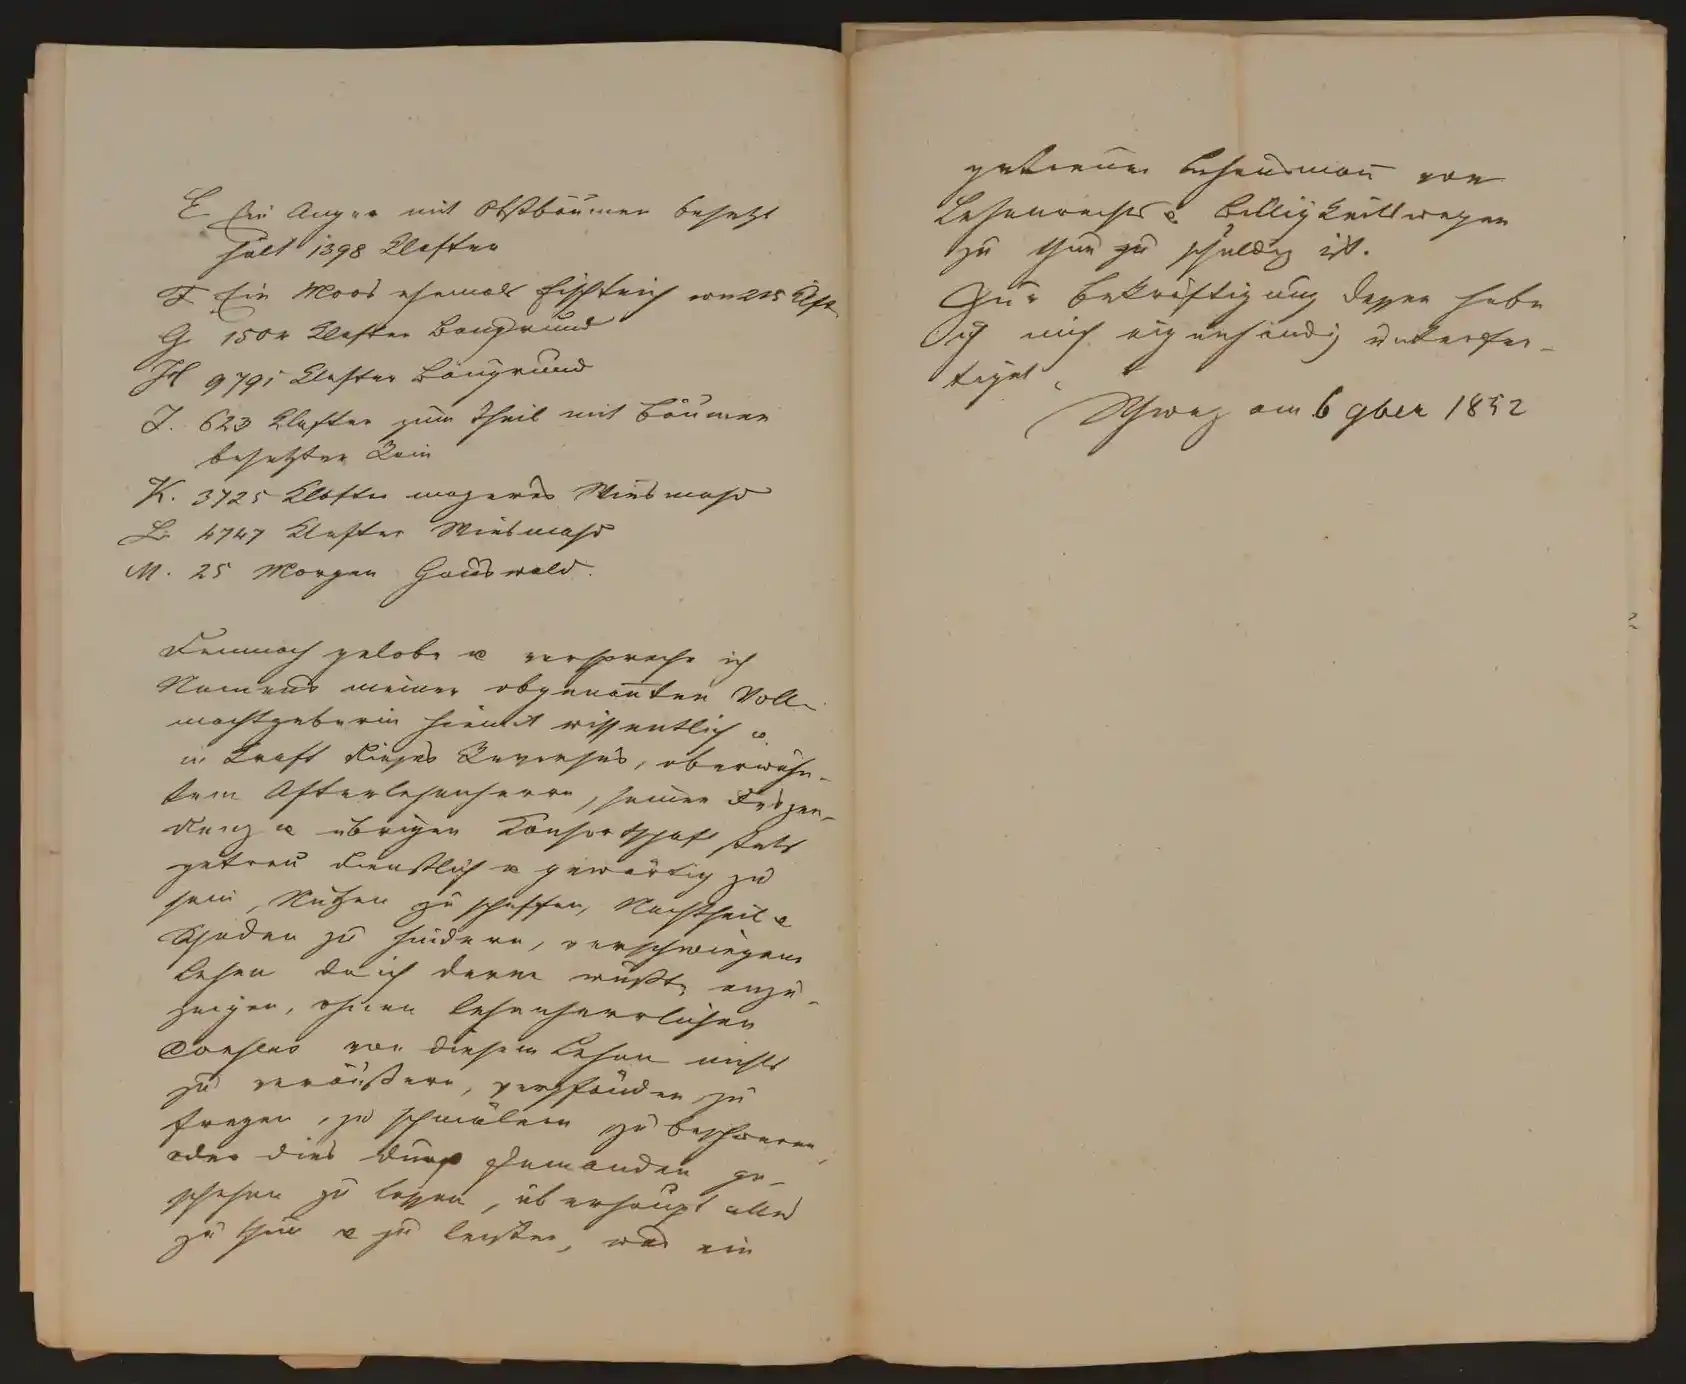 E Ein Anger mit Obstbäumen besetzt
hält 1398 Klafter
F Ein Moos ehemals Fischteich von 215 Klft.
G 1502 Klafter Baugrund
H 9791 Klafter Baugrund
J. 623 Klafter zum Theil mit Bäumen
besetzter Rein
K. 3725 Klafter mageres Wiesmahd
L. 4747 Klafter Wiesmahd
M. 25 Morgen Hauswald.
Demnach gelobe & verspreche ich
Namens meiner obgenanten Voll-
machtgeberin hiemit wissentlich &
in Kraft dieses Reverses, oberwähn-
tem Afterlehenherrn, seiner Deszen-
denz & übrigen Konsortschaft stets
getreu dienstlich & gewärtig zu
sein, Nutzen zu schaffen, Nachtheil &
Schaden zu hindern, verschwiegene
Lehen da ich deren wußte anzu-
zeigen, ohnen lehenherrlichen
Consens von diesem Lehen nichts
zu veräußern, verpfänden zu
fragen, zu schmälern zu beschweren,
oder dies durch Jemanden ge-
schehen zu lassen, überhaupt alles
zu thun & zu leisten, was ein
getreuer Lehensman̄ von
Lehenrechts & Billigkeitswegen
zu thun zu schuldig ist.
Zur Bekräftigung dessen habe
ich mich eigenhändig unterfer-
tiget.
Schwaz am 6 9ber 1852